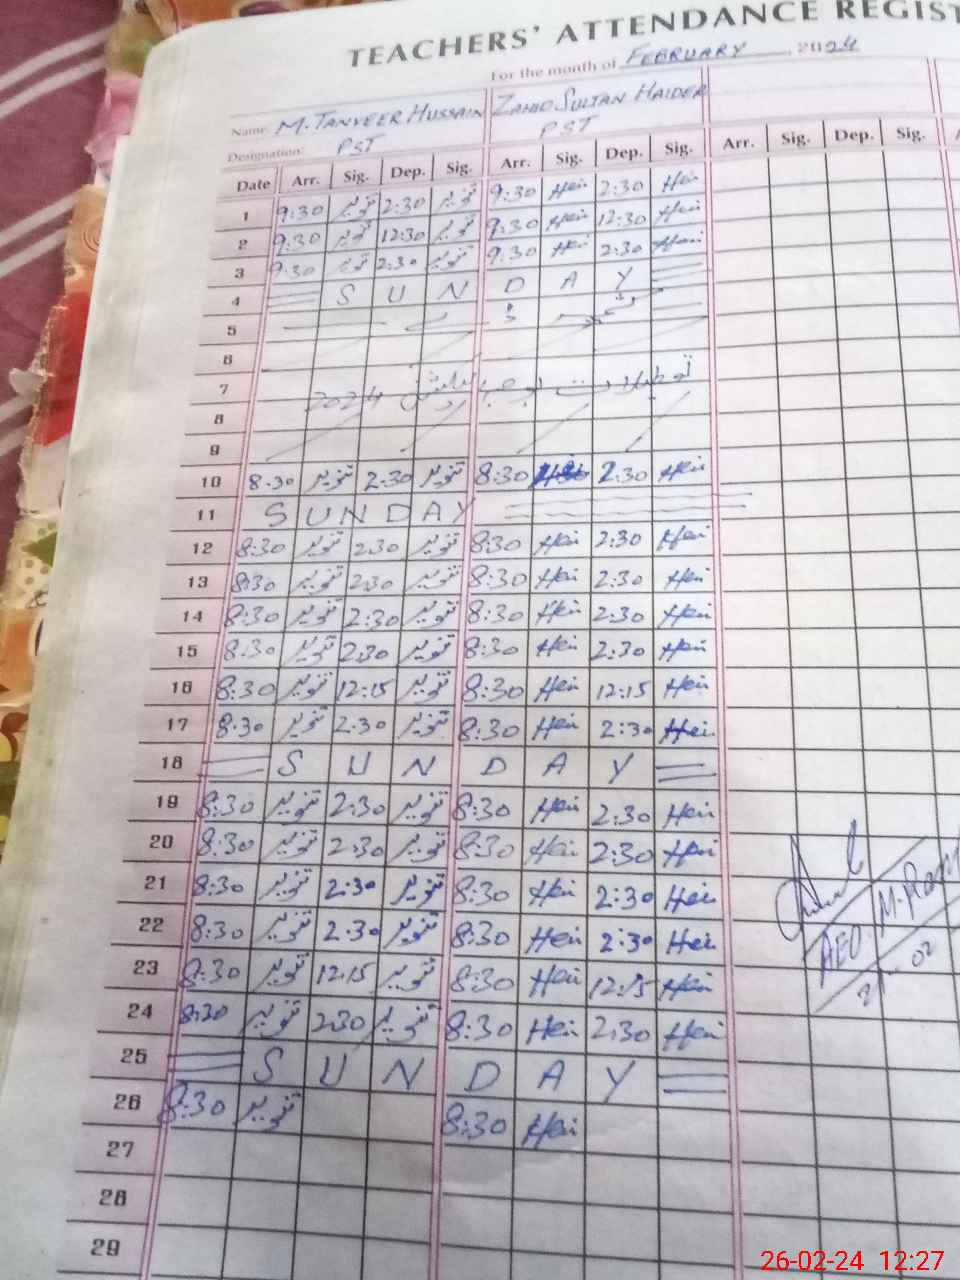 TEACHERS' ATTENDANCE REGIST
For the month of FEBRUARY 2024
Name: M. TANVEER HUSSAIN ZAHID SULTAN HAIDER
Designation: PST PST
Date Arr. Sig. Dep. Sig. Arr. Sig. Dep. Sig. Arr. Sig. Dep. Sig.
1 9:30 تنویر 2:30 تنویر 9:30 Hai 2:30 Hai
2 9:30 تنویر 12:30 تنویر 9:30 Hai 12:30 Hai
3 9:30 تنویر 2:30 تنویر 9:30 Hai 2:30 Hai
4 S U N D A Y
5
6
7 2024
8
9
10 8:30 تنویر 2:30 تنویر 8:30 2:30 Hai
11 SUNDAY
12 8:30 تنویر 2:30 تنویر 8:30 Hai 2:30 Hai
13 8:30 تنویر 2:30 تنویر 8:30 Hai 2:30 Hai
14 8:30 تنویر 2:30 تنویر 8:30 Hai 2:30 Hai
15 8:30 تنویر 2:30 تنویر 8:30 Hai 2:30 Hai
16 8:30 تنویر 12:15 تنویر 8:30 Hai 12:15 Hai
17 8:30 تنویر 2:30 تنویر 8:30 Hai 2:30 Hai
18 S U N D A Y
19 8:30 تنویر 2:30 تنویر 8:30 Hai 2:30 Hai
20 8:30 تنویر 2:30 تنویر 8:30 Hai 2:30 Hai
21 8:30 تنویر 2:30 تنویر 8:30 Hai 2:30 Hai
22 8:30 تنویر 2:30 تنویر 8:30 Hai 2:30 Hai
23 8:30 تنویر 12:15 تنویر 8:30 Hai 12:15 Hai
24 8:30 تنویر 2:30 تنویر 8:30 Hai 2:30 Hai
25 S U N D A Y
26 8:30 تنویر 8:30 Hai
27
28
29
AEO M.
21 02
26-02-24 12:27